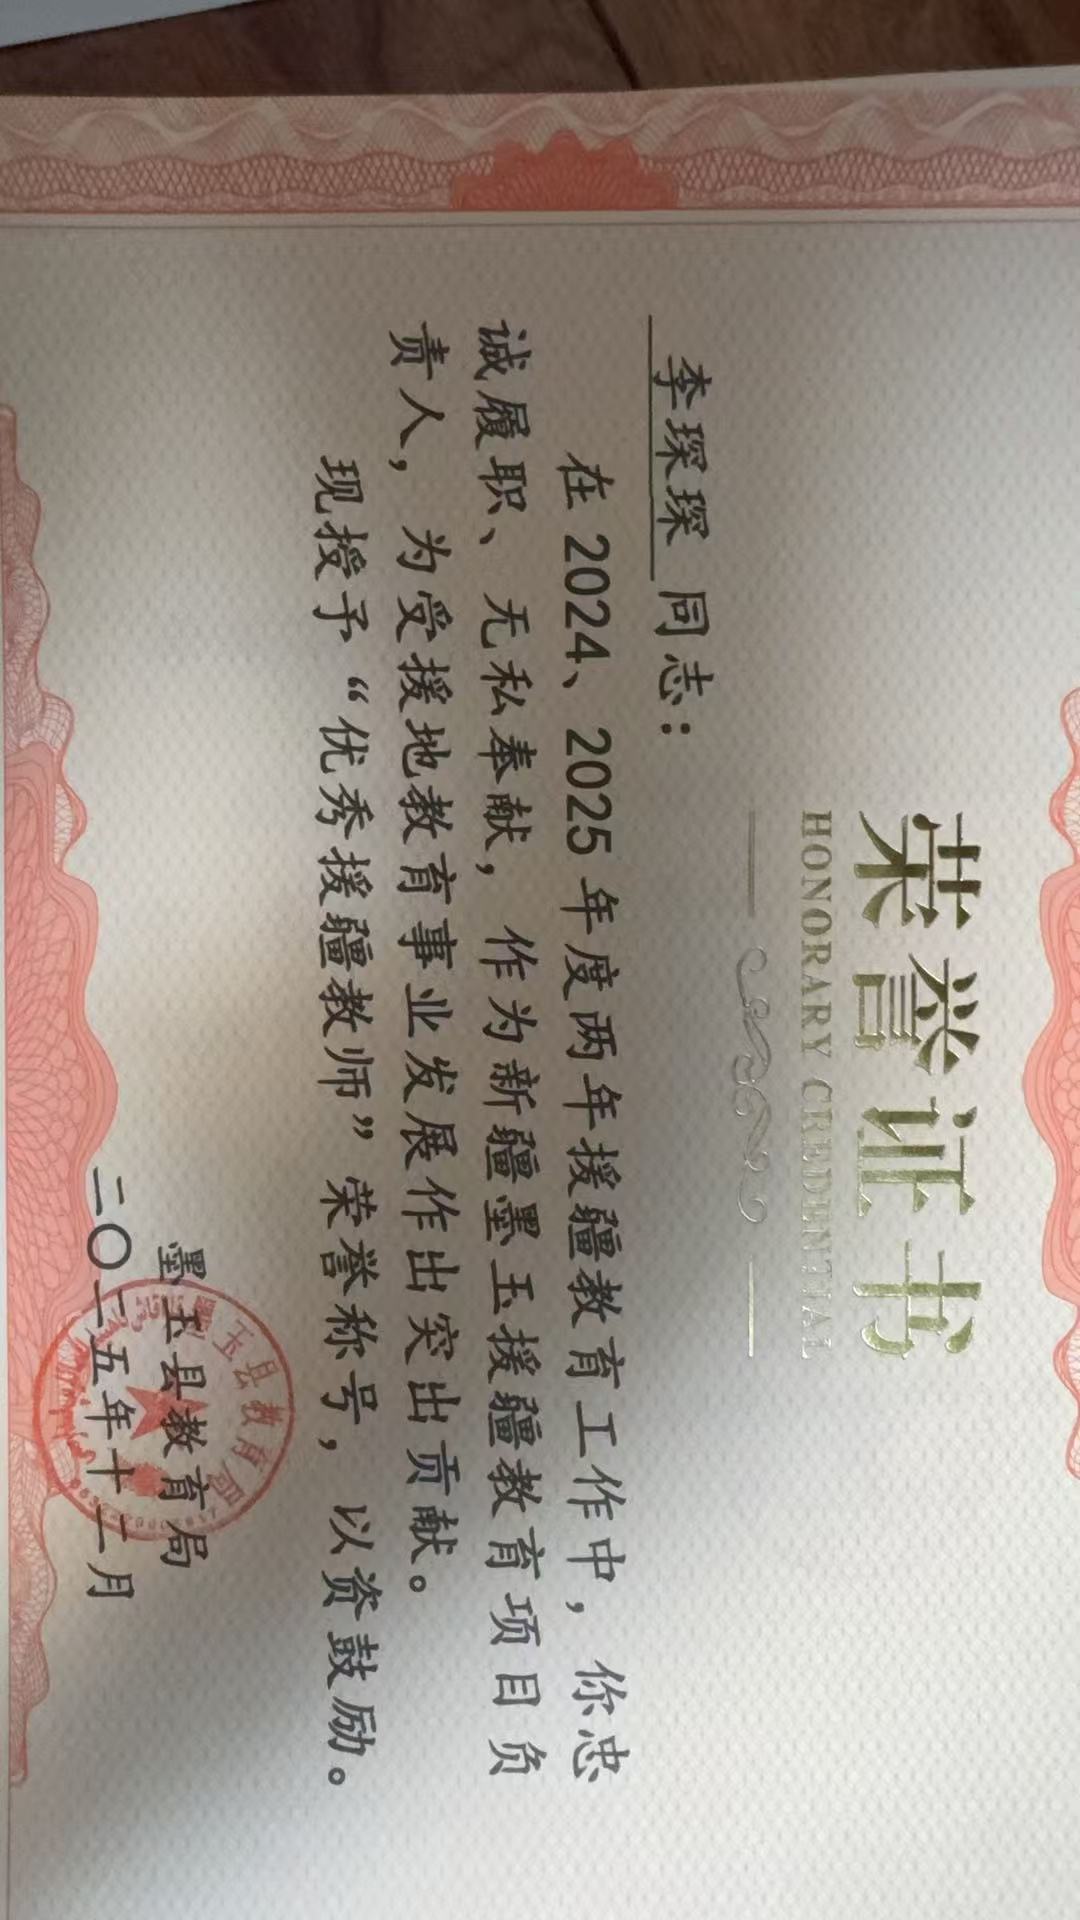 荣誉证书
HONORARY CREDENTIAL
李琛琛 同志：
在 2024、2025 年度两年援疆教育工作中，你忠
诚履职、无私奉献，作为新疆墨玉援疆教育项目负
责人，为受援地教育事业发展作出突出贡献。
现授予“优秀援疆教师”荣誉称号，以资鼓励。
墨玉县教育局
二〇二五年十二月
墨玉县教育局